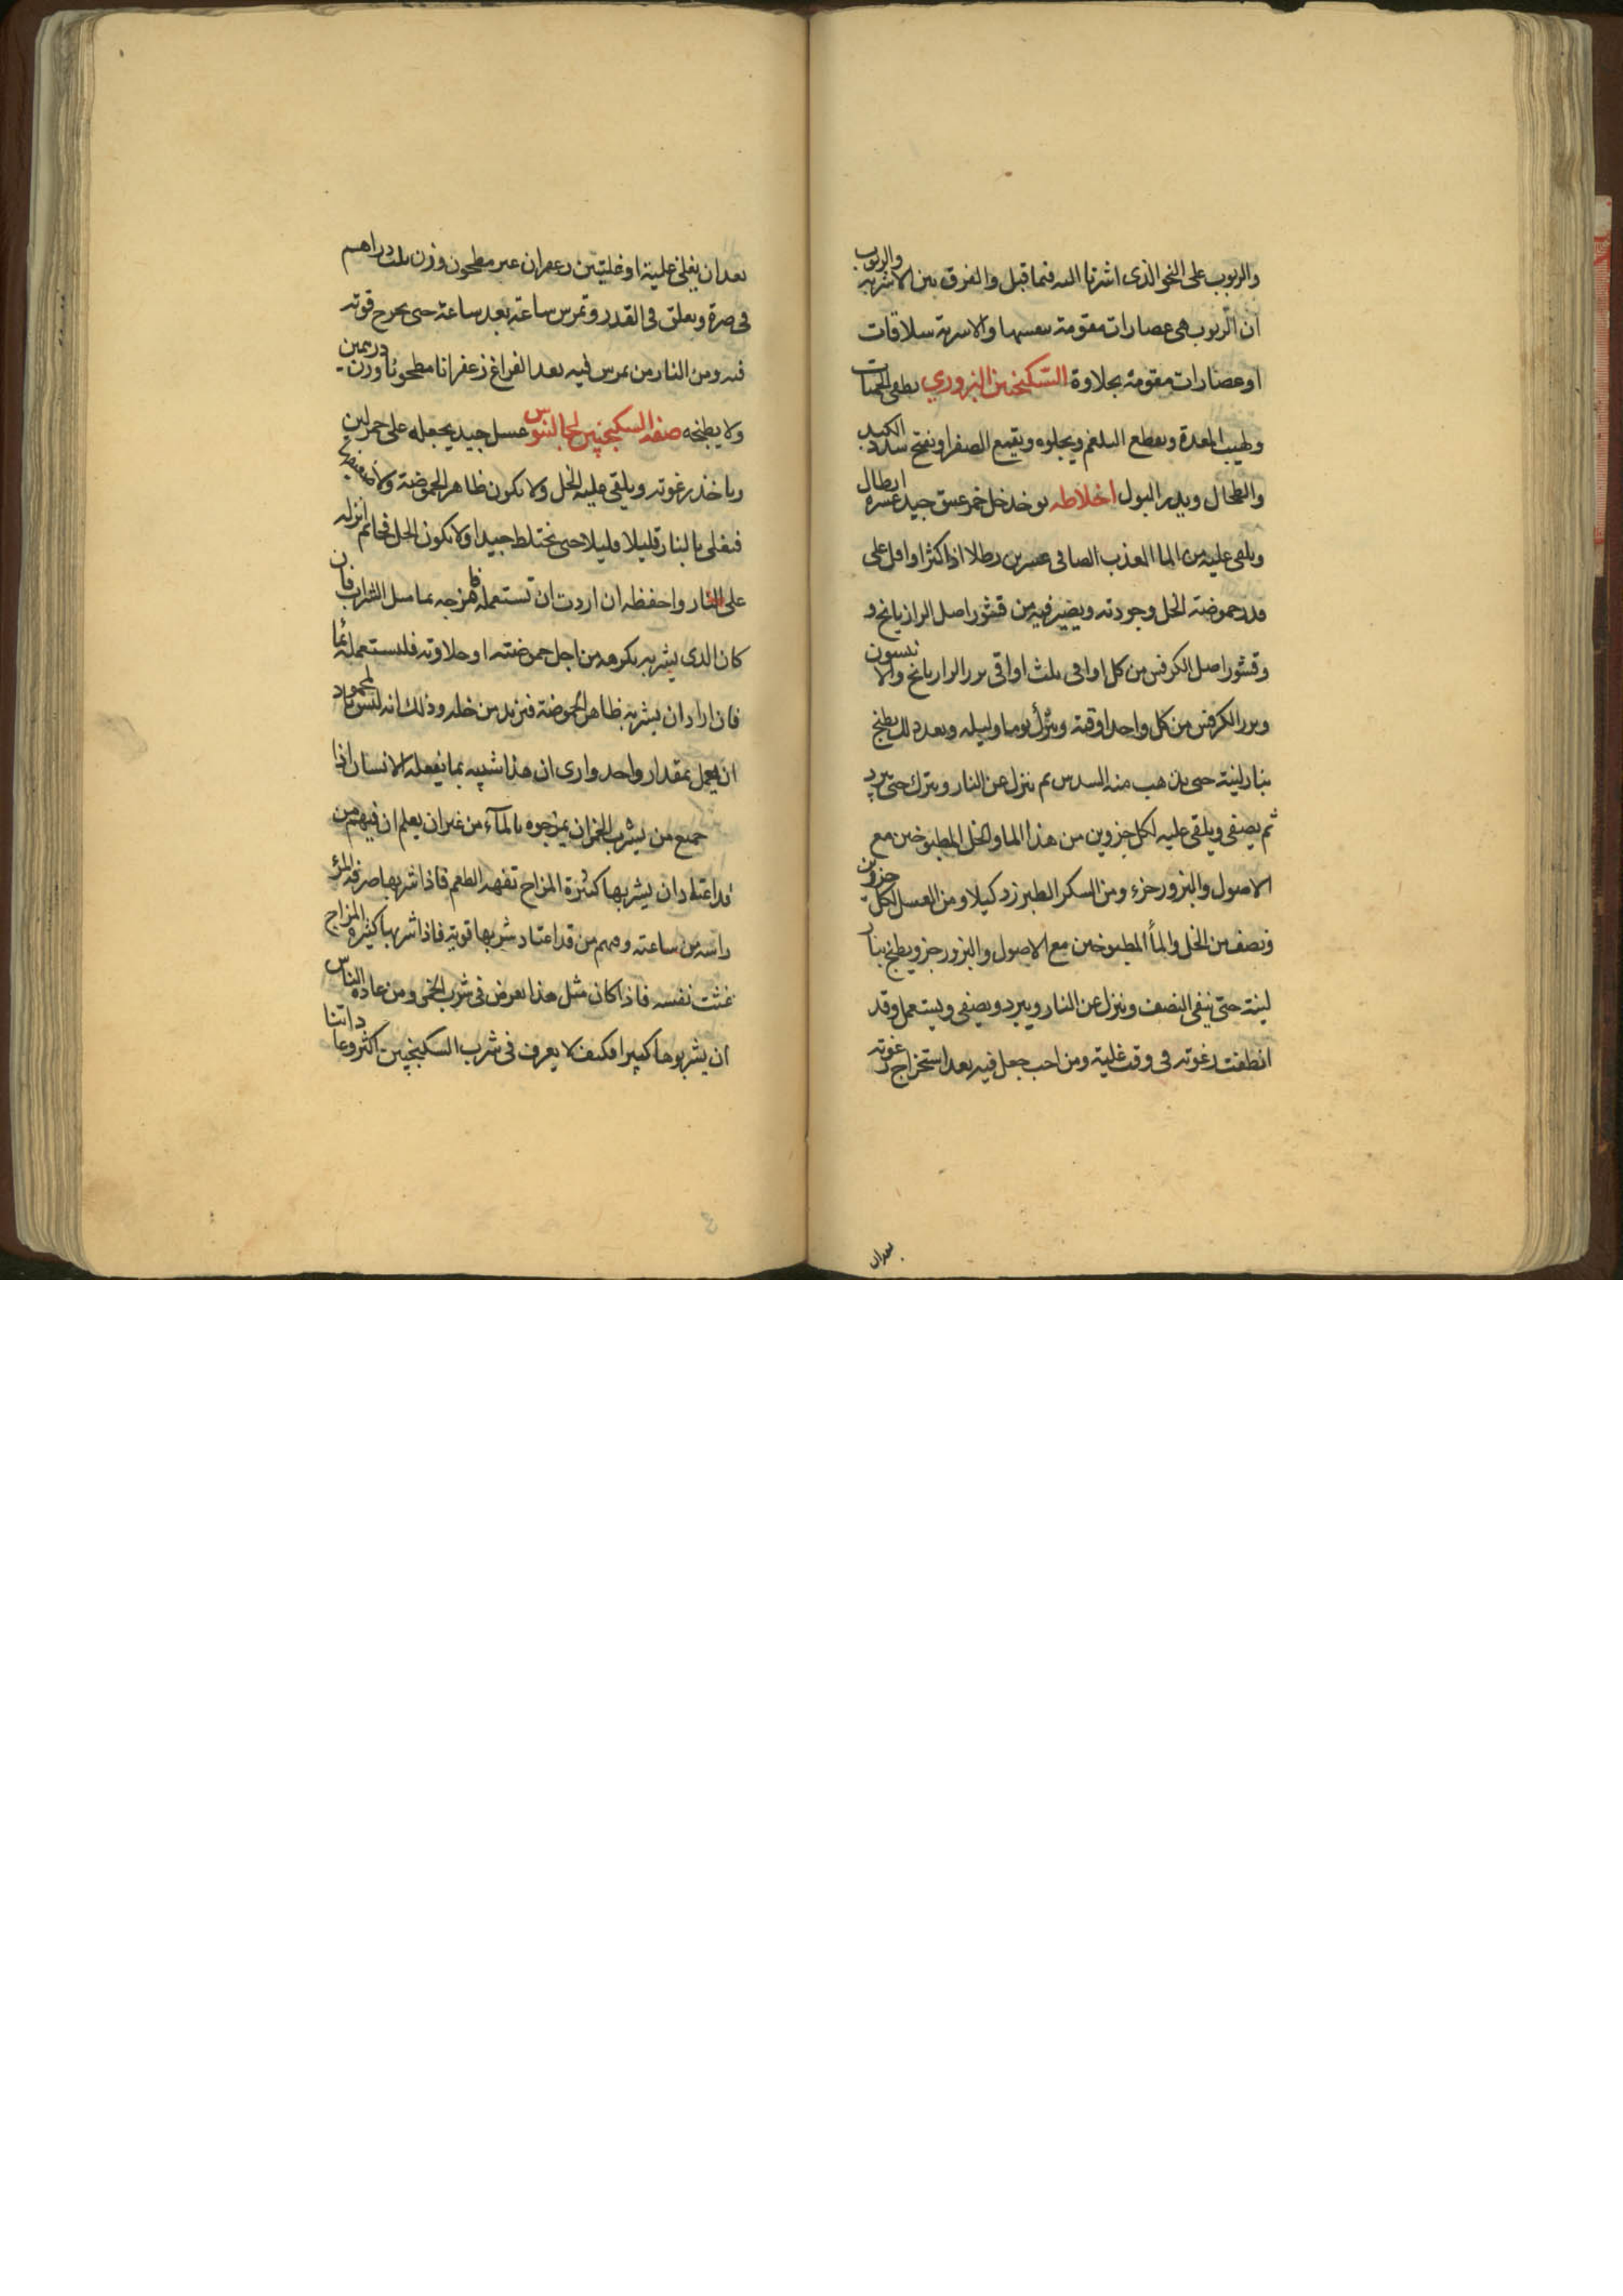 والربوب على النحو الذى اشرنا اليه فيما قبل والفرق بين الاشربه والربوب
ان الربوب هى عصارات مقومة بنفسها والاشربة سلاقات
او عصارات مقومة بحلاوة السكنجبين البزوري يطفى الحميات
وطيب المعدة ويقطع البلغم ويجلوه ويقمع الصفرا ويفتح سدد الكبد
والطحال ويدر البول اخلاطه يوخذ خل خمر عتيق جيد عشره ارطال
ويلقى عليه من الما العذب الصافى عشرين رطلا اذا كثرا واقل على
قدر حموضة الخل وجودته ويصير فيه من قشور اصل الرازيانج و
وقشور اصل الكرفس من كل اواقى ثلث اواقى بزر الرازيانج والانيسون
وبزر الكرفس من كل واحد اوقية ويترك يوما وليله وبعد ذلك يطبخ
بنار لينة حتى يذهب منه السدس ثم ينزل عن النار ويترك حتى يبرد
ثم يصفى ويلقى عليه لكل جزوين من هذا الما والخل المطبوخين مع
الاصول والبزور جزء ومن السكر الطبرزد كيلا ومن العسل لكل جزوين
ونصف من الخل والمأ المطبوخين مع الاصول والبزور جزو يطبخ بنار
لينة حتى يبقى النصف وينزل عن النار ويبرد ويصفى ويستعمل وقد
انطفت رغوته فى وقت غلية ومن احب جعل فيه بعد استخراج رغوته
بعد ان
بعد ان يغلى غلية او غليتين زعفران غير مطحون وزن ثلث دراهم
فى صرة ويعلق فى القدر وتمرس ساعة بعد ساعة حتى يخرج قوته
فيه ومن النار من يمرس فيه بعد الفراغ زعفرانا مطحونا وزن درهمين
ولا يطبخه صفة السكنجبين لجالينوس عسل جيد يجعله على جمر لين
وياخذ رغوته ويلقى عليه الخل ولا يكون ظاهر الحموضة ولا ضعيفها
فيغلى بالنار قليلا قليلا حتى يختلط جيدا ولا يكون الخل فجا ثم انزله
على النار واحفظه ان اردت ان تستعمله فامزجه بما مثل الشراب فان
كان الذى يشربه يكرهه من اجل حموضته او حلاوته فليستعمله ثما
فان اراد ان يشربه ظاهر الحموضة فيزيد من خله وذلك انه ليس بالمحمود
ان يعمل بمقدار واحد وارى ان هذا شبيه بما يفعله الانسان اذا
جميع من يشرب الخمر ان يمزجوه بالمآء من غير ان يعلم ان فيهم من
قد اعتاد ان يشربها كثيرة المزاج تفهة الطعم فاذا شربها صرفة المز
راسه من ساعته ومنهم من قد اعتاد شربها قوية فاذا شربها كثيره المزاج
غثت نفسه فاذا كان مثل هذا يعرض فى شرب الخمر ومن عادة الناس
ان يشربوها كثيرا فكيف لا يعرف فى شرب السكنجبين اكثر وعاداتنا